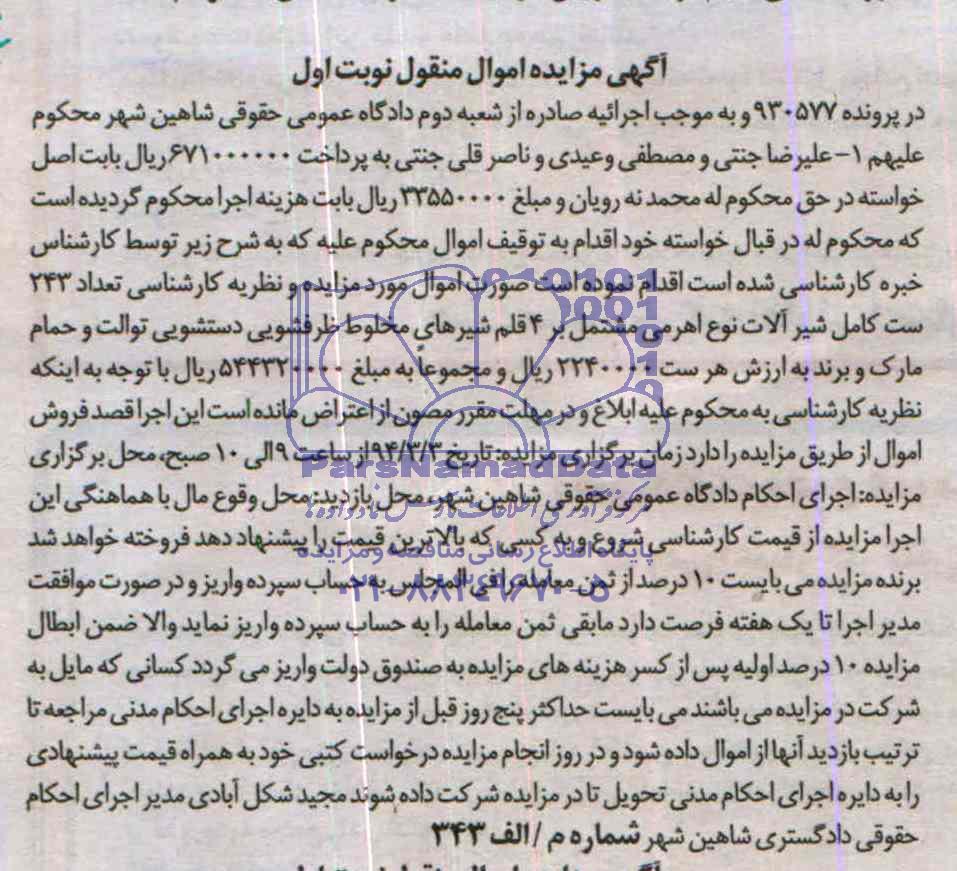 آگهی مزایده اموال منقول نوبت اول
در پرونده ۹۳۰۵۷۷ و به موجب اجرائیه صادره از شعبه دوم دادگاه عمومی حقوقی شاهین شهر محکوم
علیهم ۱- علیرضا جنتی و مصطفی وعیدی و ناصر قلی جنتی به پرداخت ۶۷۱۰۰۰۰۰۰ ریال بابت اصل
خواسته در حق محکوم له محمد نه رویان و مبلغ ۳۳۵۵۰۰۰۰ ریال بابت هزینه اجرا محکوم گردیده است
که محکوم له در قبال خواسته خود اقدام به توقیف اموال محکوم علیه که به شرح زیر توسط کارشناس
خبره کارشناسی شده است اقدام نموده است صورت اموال مورد مزایده و نظریه کارشناسی تعداد ۲۴۳
ست کامل شیر آلات نوع اهرمی مشتمل بر ۴ قلم شیرهای مخلوط ظرفشویی دستشویی توالت و حمام
مارک و برند به ارزش هر ست ۲۲۴۰۰۰۰ ریال و مجموعاً به مبلغ ۵۴۴۳۲۰۰۰۰ ریال با توجه به اینکه
نظریه کارشناسی به محکوم علیه ابلاغ و در مهلت مقرر مصون از اعتراض مانده است این اجرا قصد فروش
اموال از طریق مزایده را دارد زمان برگزاری مزایده: تاریخ ۹۴/۳/۳ از ساعت ۹ الی ۱۰ صبح، محل برگزاری
مزایده: اجرای احکام دادگاه عمومی حقوقی شاهین شهر، محل بازدید: محل وقوع مال با هماهنگی این
اجرا مزایده از قیمت کارشناسی شروع و به کسی که بالاترین قیمت را پیشنهاد دهد فروخته خواهد شد
برنده مزایده می بایست ۱۰ درصد از ثمن معامله را فی المجلس به حساب سپرده واریز و در صورت موافقت
مدیر اجرا تا یک هفته فرصت دارد مابقی ثمن معامله را به حساب سپرده واریز نماید والا ضمن ابطال
مزایده ۱۰ درصد اولیه پس از کسر هزینه های مزایده به صندوق دولت واریز می گردد کسانی که مایل به
شرکت در مزایده می باشند می بایست حداکثر پنج روز قبل از مزایده به دایره اجرای احکام مدنی مراجعه تا
ترتیب بازدید آنها از اموال داده شود و در روز انجام مزایده درخواست کتبی خود به همراه قیمت پیشنهادی
را به دایره اجرای احکام مدنی تحویل تا در مزایده شرکت داده شوند مجید شکل آبادی مدیر اجرای احکام
حقوقی دادگستری شاهین شهر شماره م / الف ۳۴۳
ParsNamadData
پایگاه اطلاع رسانی مناقصه و مزایده
۰۲۱-۸۸۳۴۹۶۷۰-۵